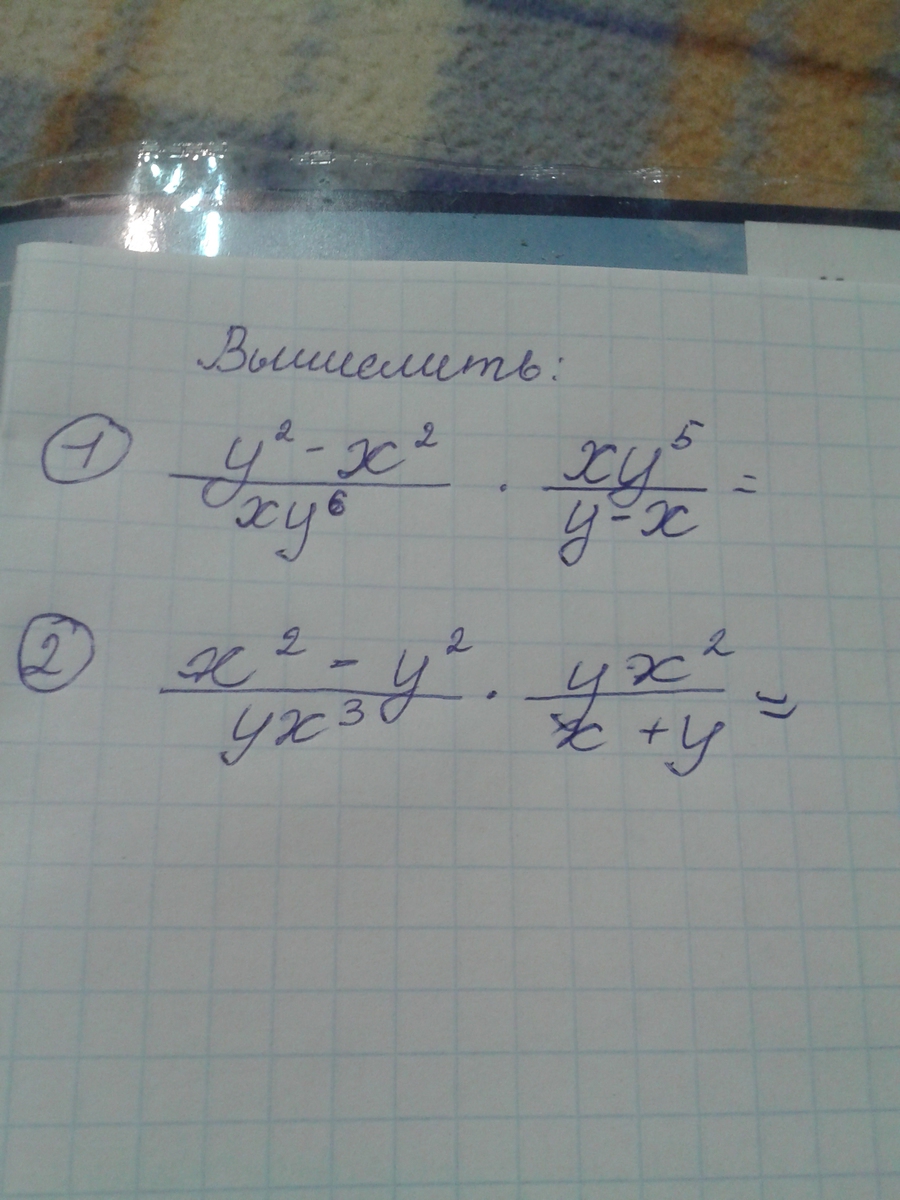 Вычислить:
① \frac{y^2 - x^2}{xy^6} · \frac{xy^5}{y - x} =
② \frac{x^2 - y^2}{yx^3} · \frac{yx^2}{x + y} =